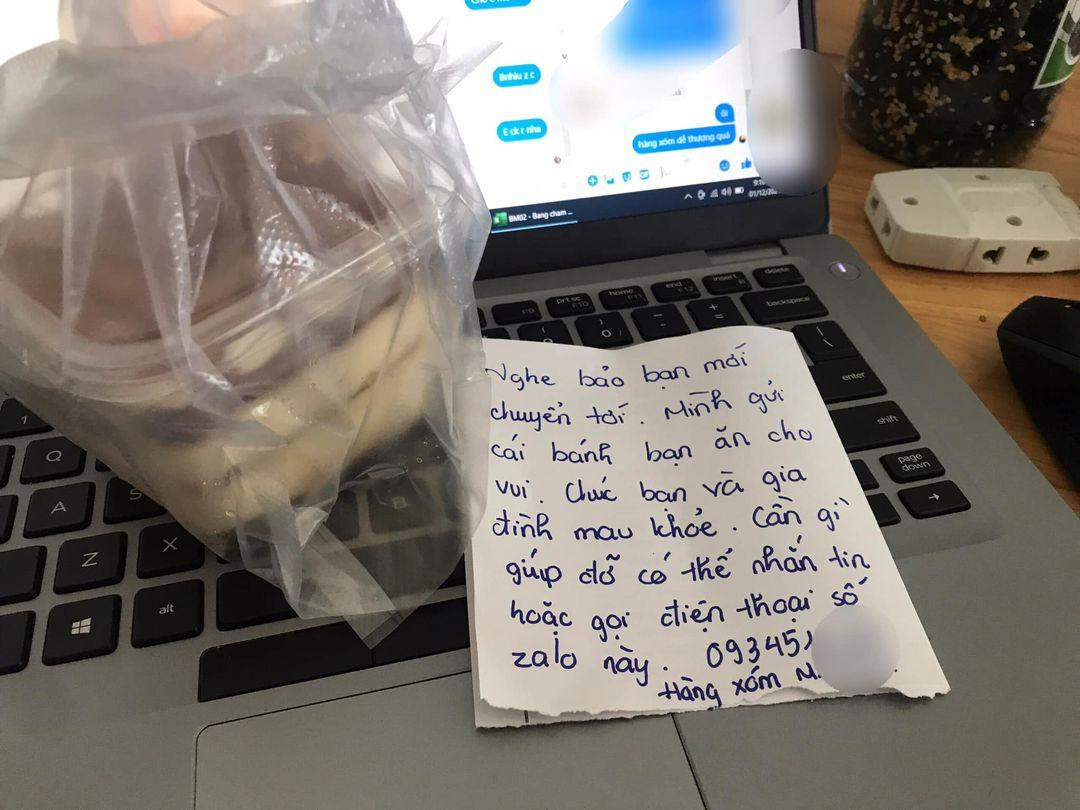 Bnhiu z c
E ck r nha
ôi
hàng xóm dễ thương quá
GIF
BM02 - Bang cham ...
01/12/
F9
prt sc
F10
home
F11
end
F12
insert
delete
backspace
enter
shift
page
down
1
Q
A
S
Z
X
B
alt
Nghe bảo bạn mới
chuyển tới. Mình gửi
cái bánh bạn ăn cho
vui. Chúc bạn và gia
đình mau khỏe. Cần gì
giúp đỡ có thể nhắn tin
hoặc gọi điện thoại số
zalo này. 09345
Hàng xóm M.